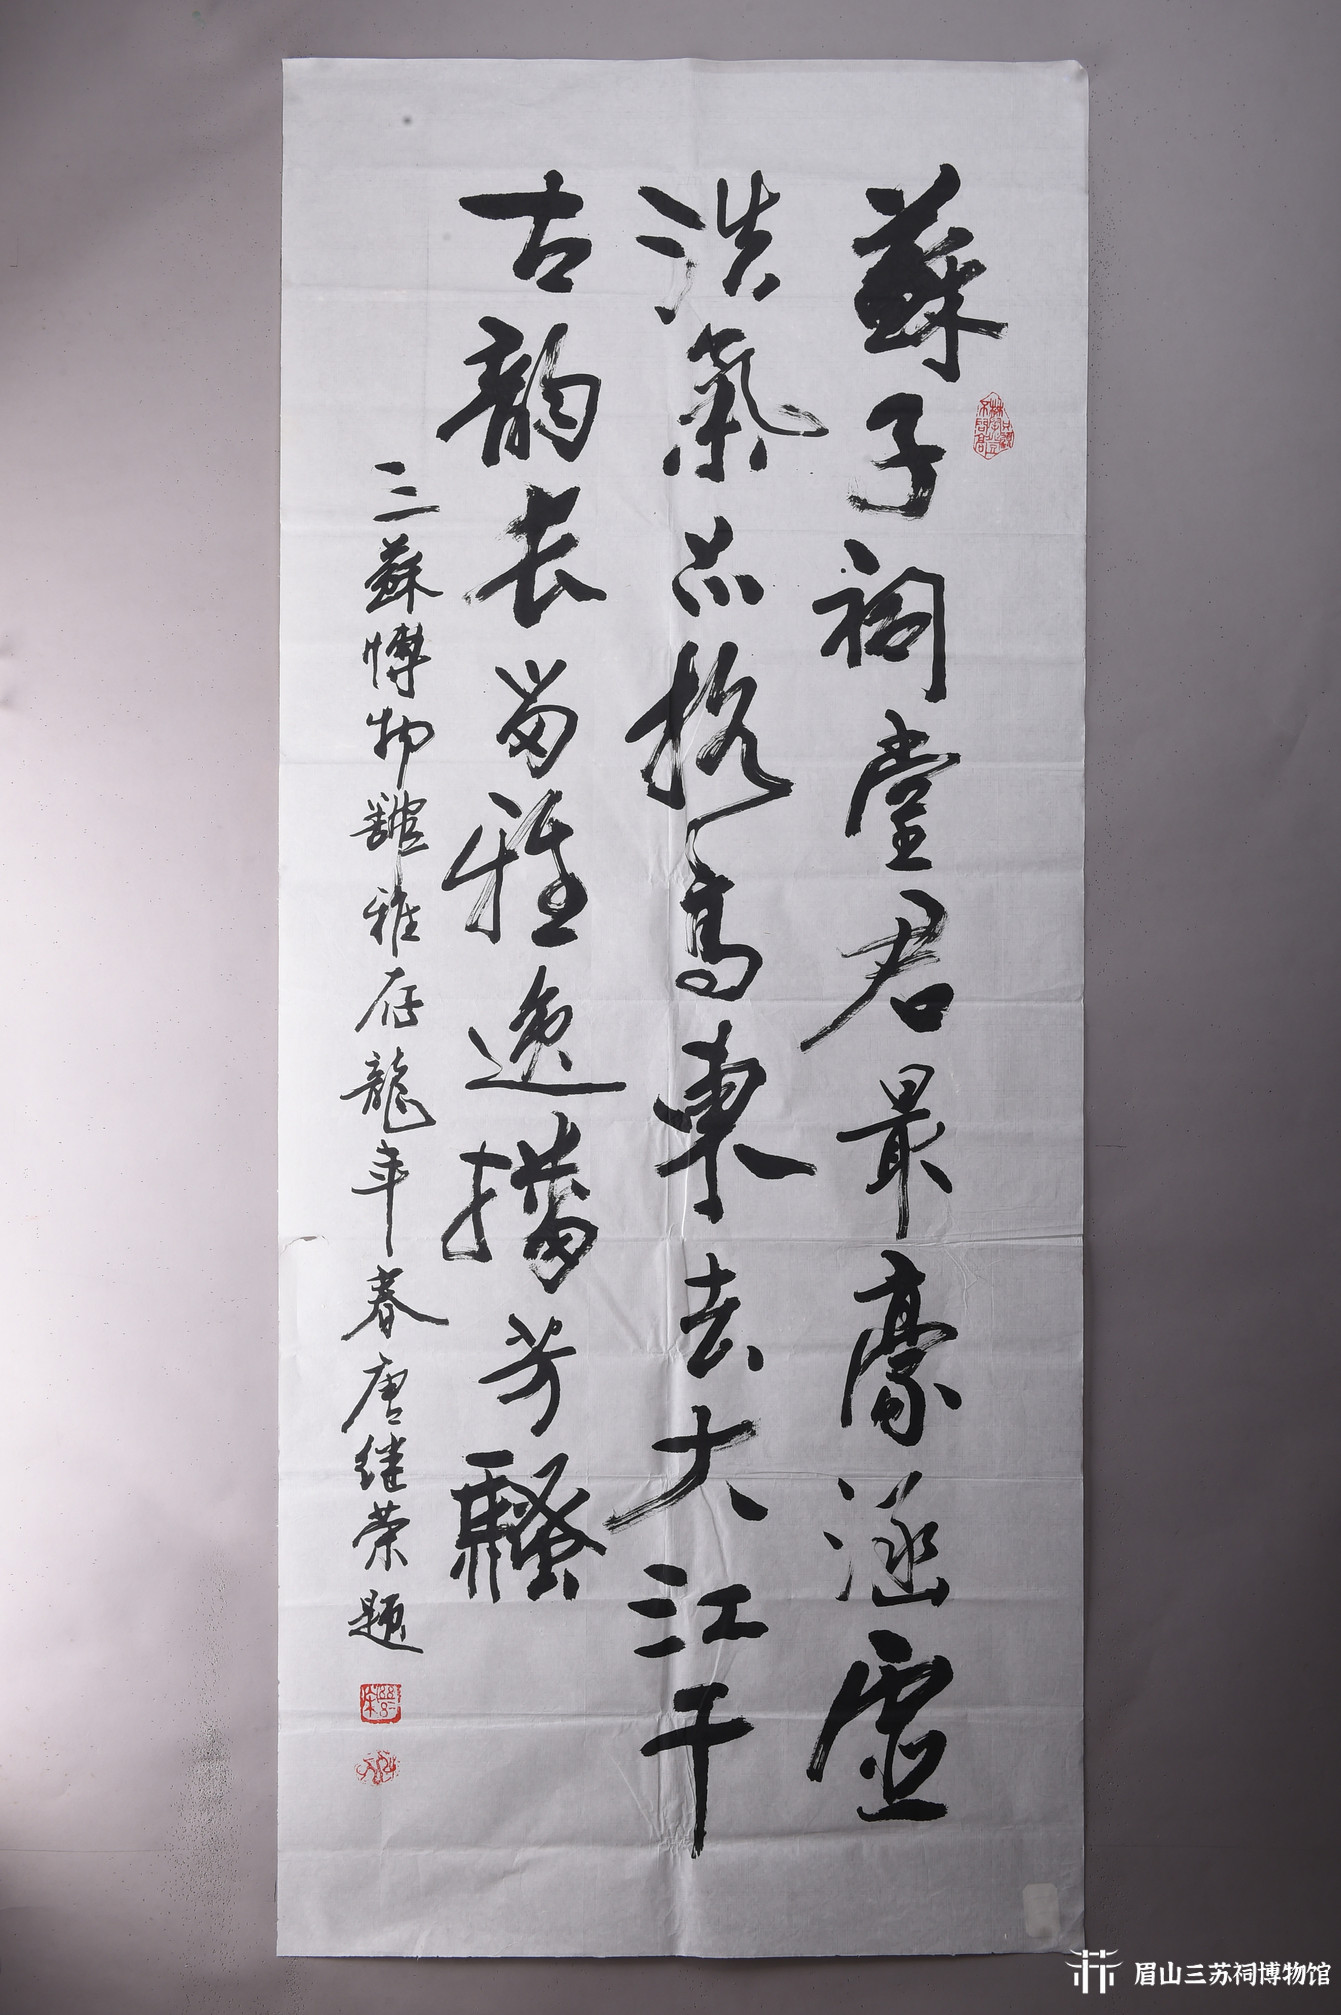 蘇子祠堂君最豪涵虛
浩氣亦格高東去大江千
古韵長留雅逸播芳騷
三蘇博物館雅存龍年春唐继荣题
眉山三苏祠博物馆